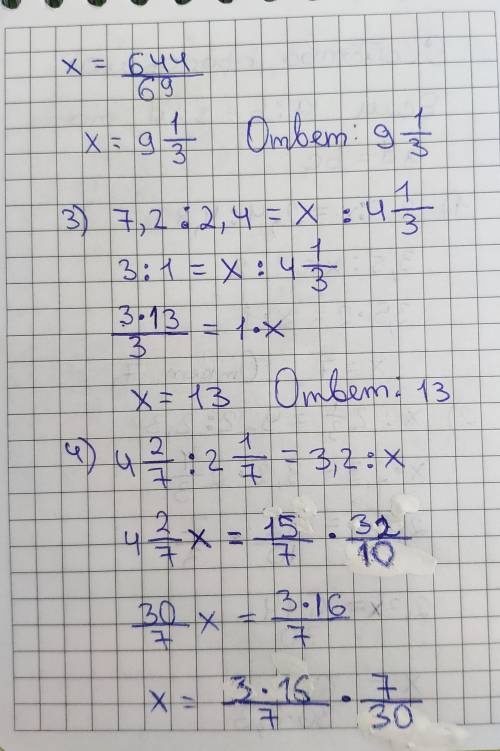 x = 644/69
x = 9 1/3 Ответ: 9 1/3
3) 7,2 : 2,4 = x : 4 1/3
3 : 1 = x : 4 1/3
3·13/3 = 1·x
x = 13 Ответ: 13
4) 4 2/7 : 2 1/7 = 3,2 : x
4 2/7 x = 15/7 · 32/10
30/7 x = 3·16/7
x = 3·16/7 · 7/30